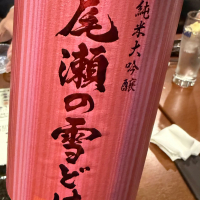 純米大吟醸
尾瀬の雪ど